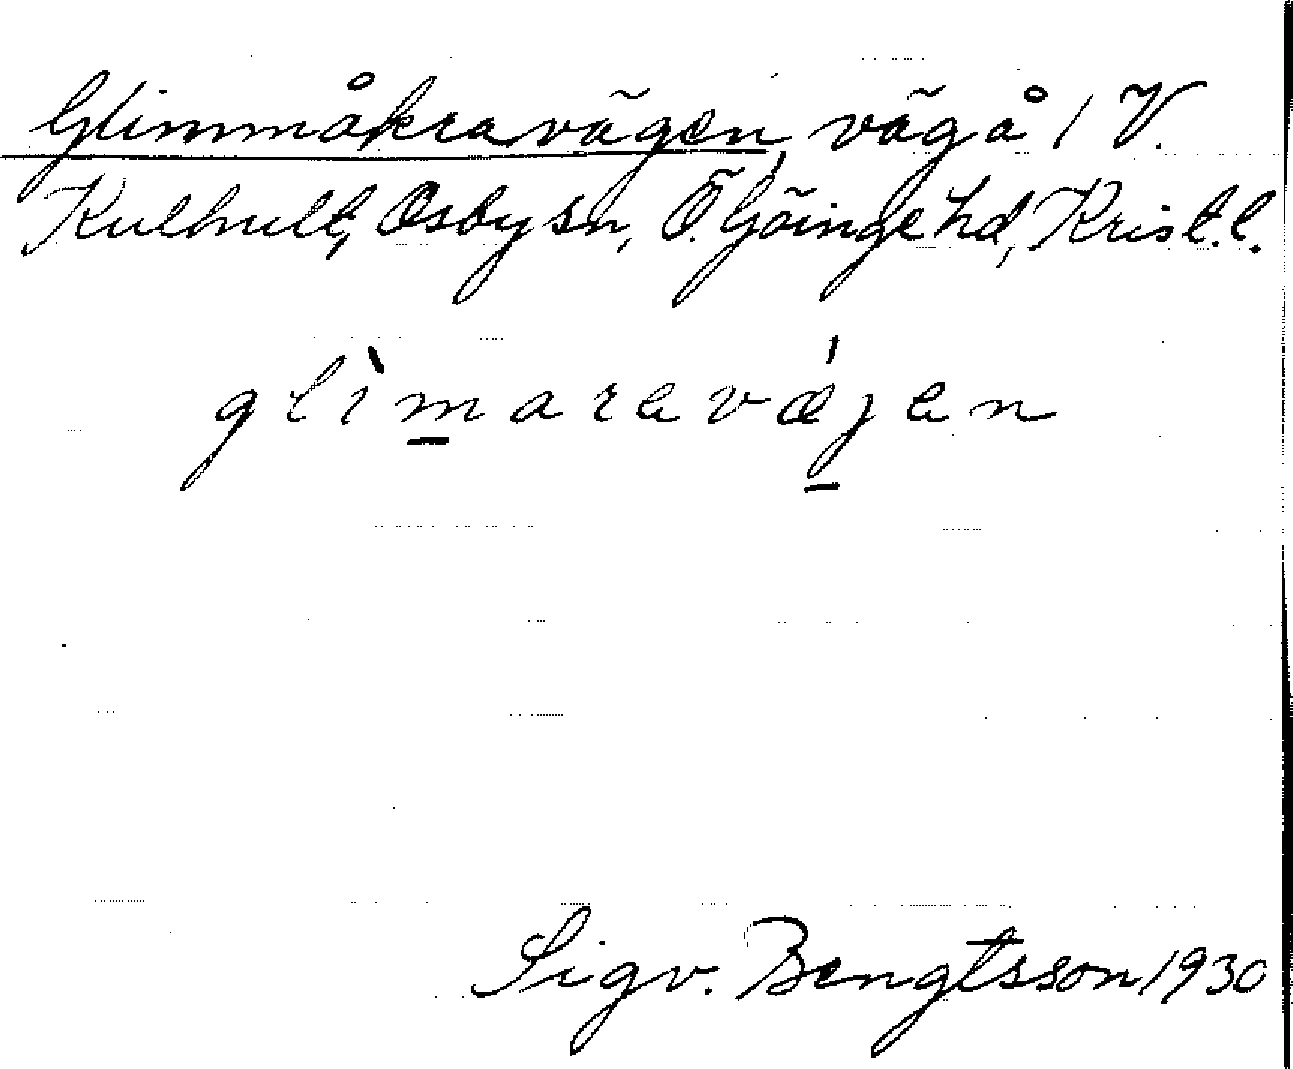 Glimmåkravägen, väg å 1 V.
Kulhult, Osby sn, Ö. Göinge hd, Krist. l.
glìmaravǽjen
Sigv. Bengtsson 1930